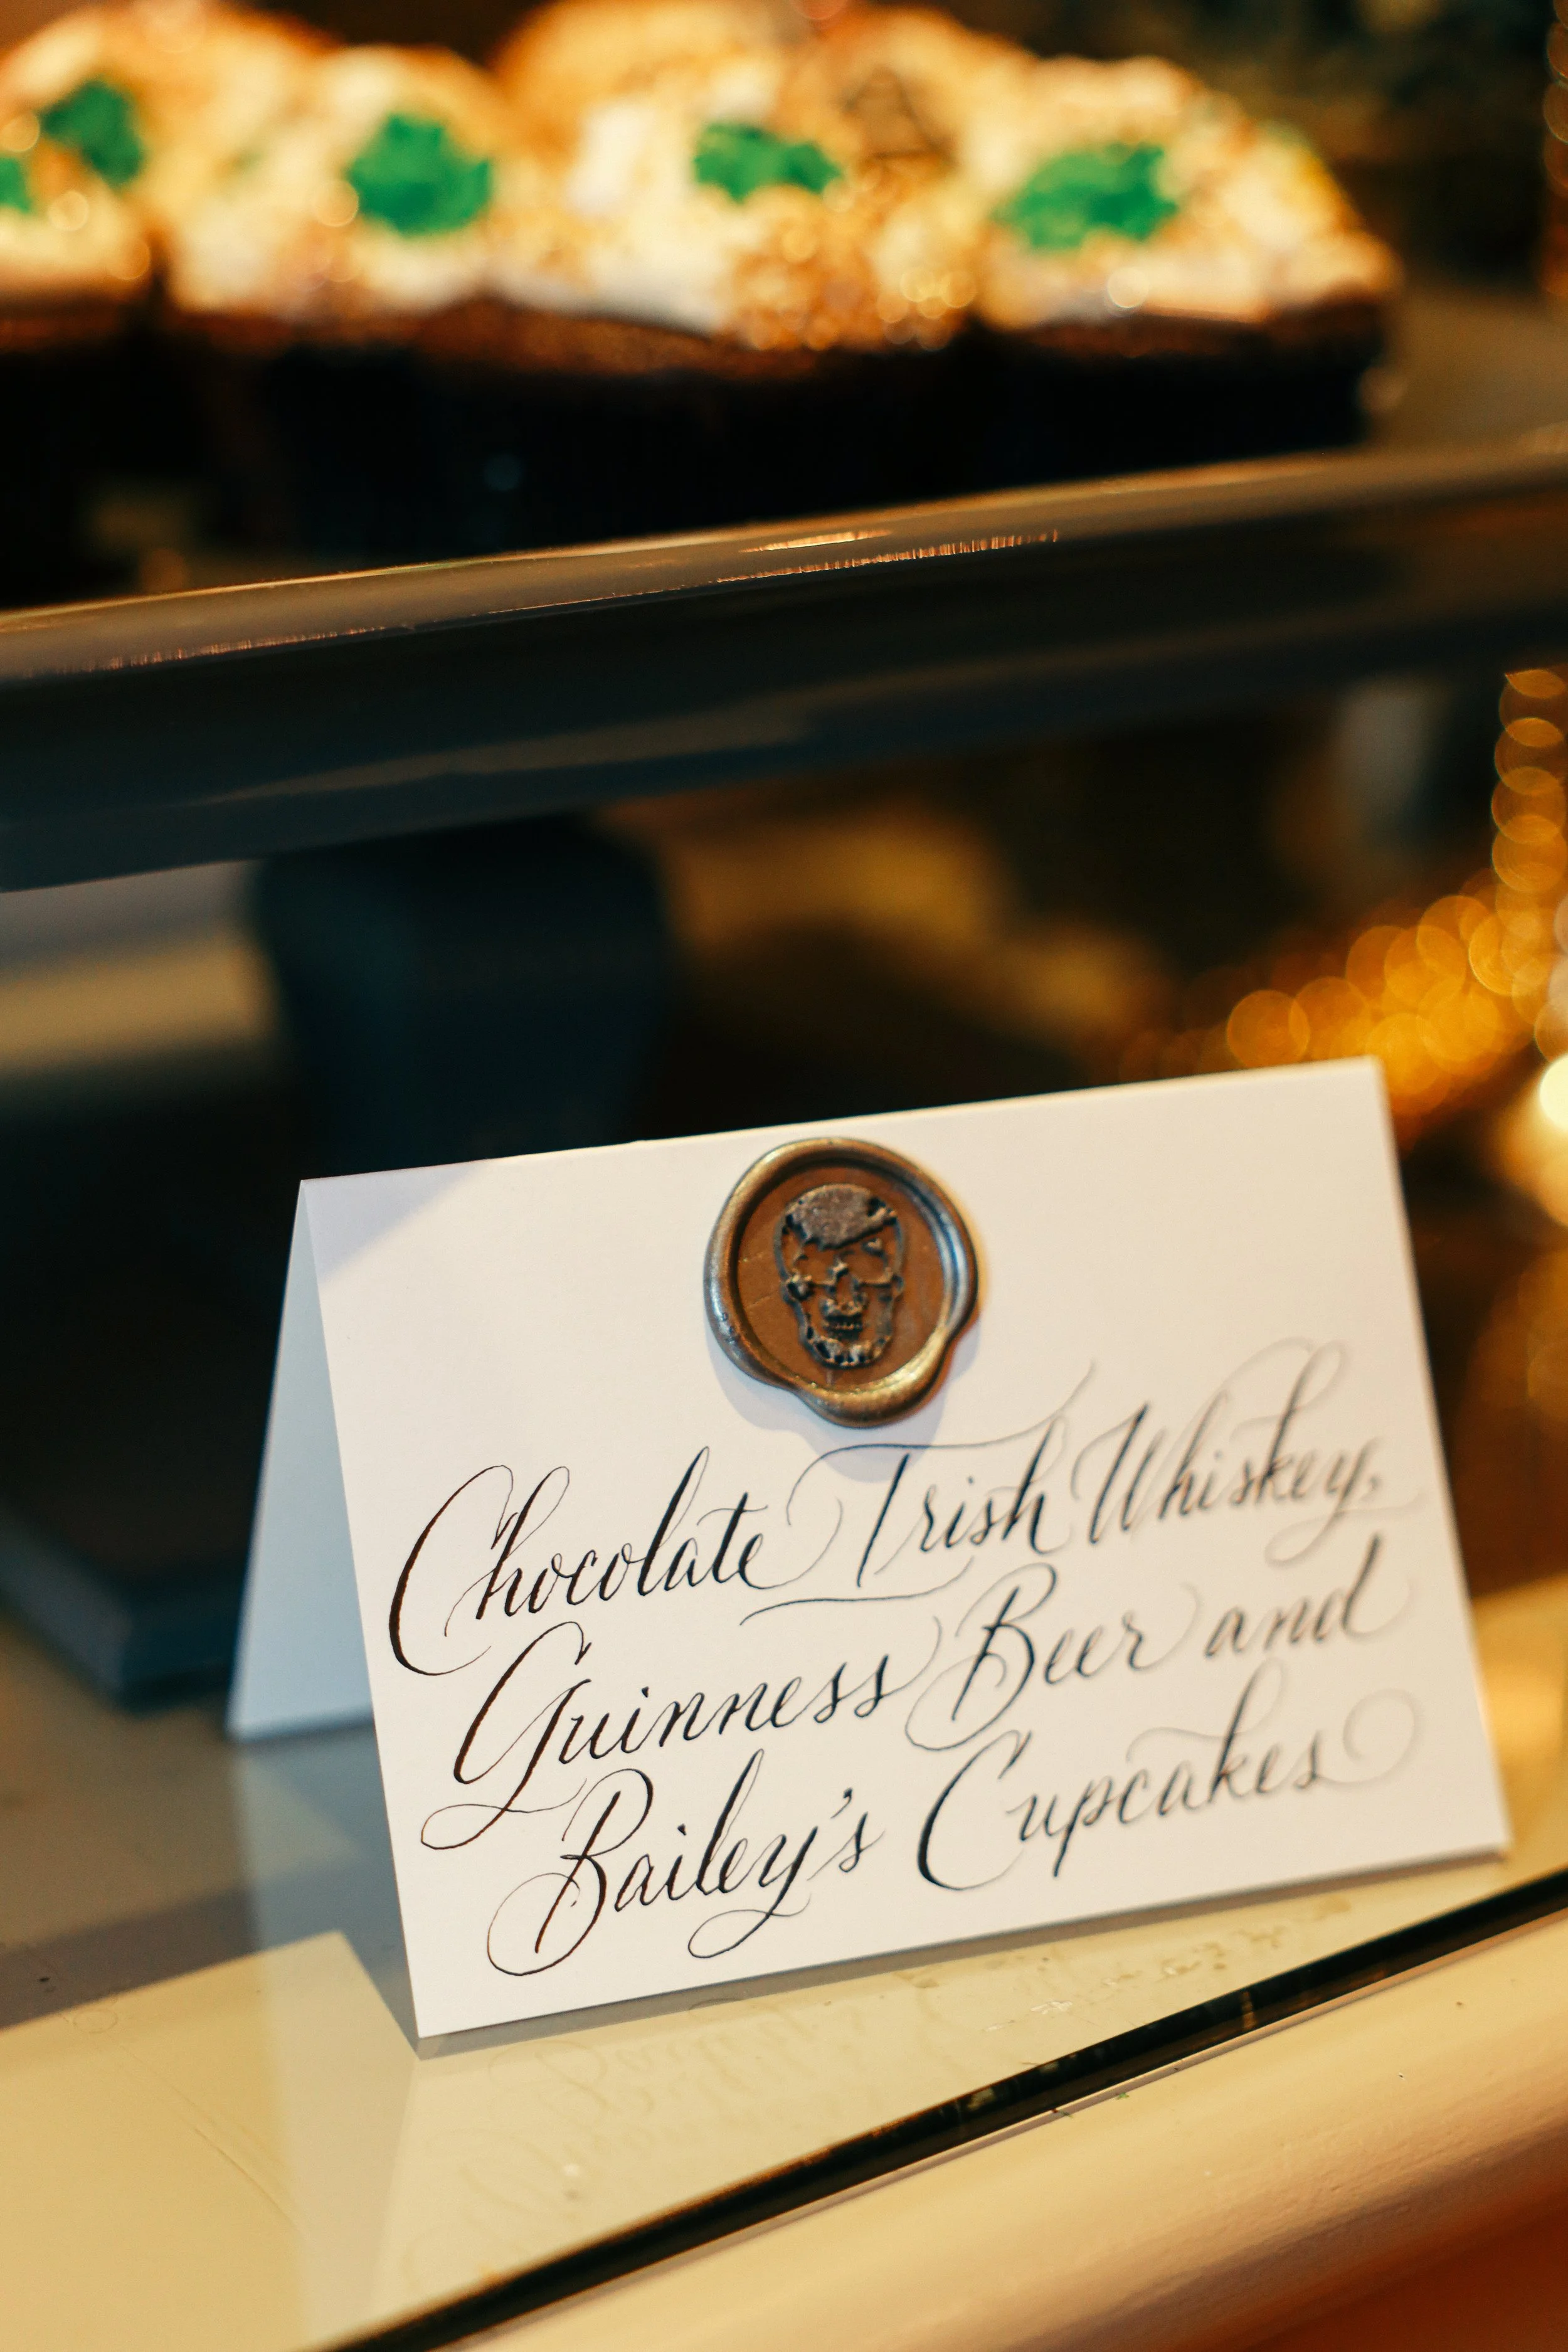 Chocolate Irish Whiskey,
Guinness Beer and
Bailey's Cupcakes